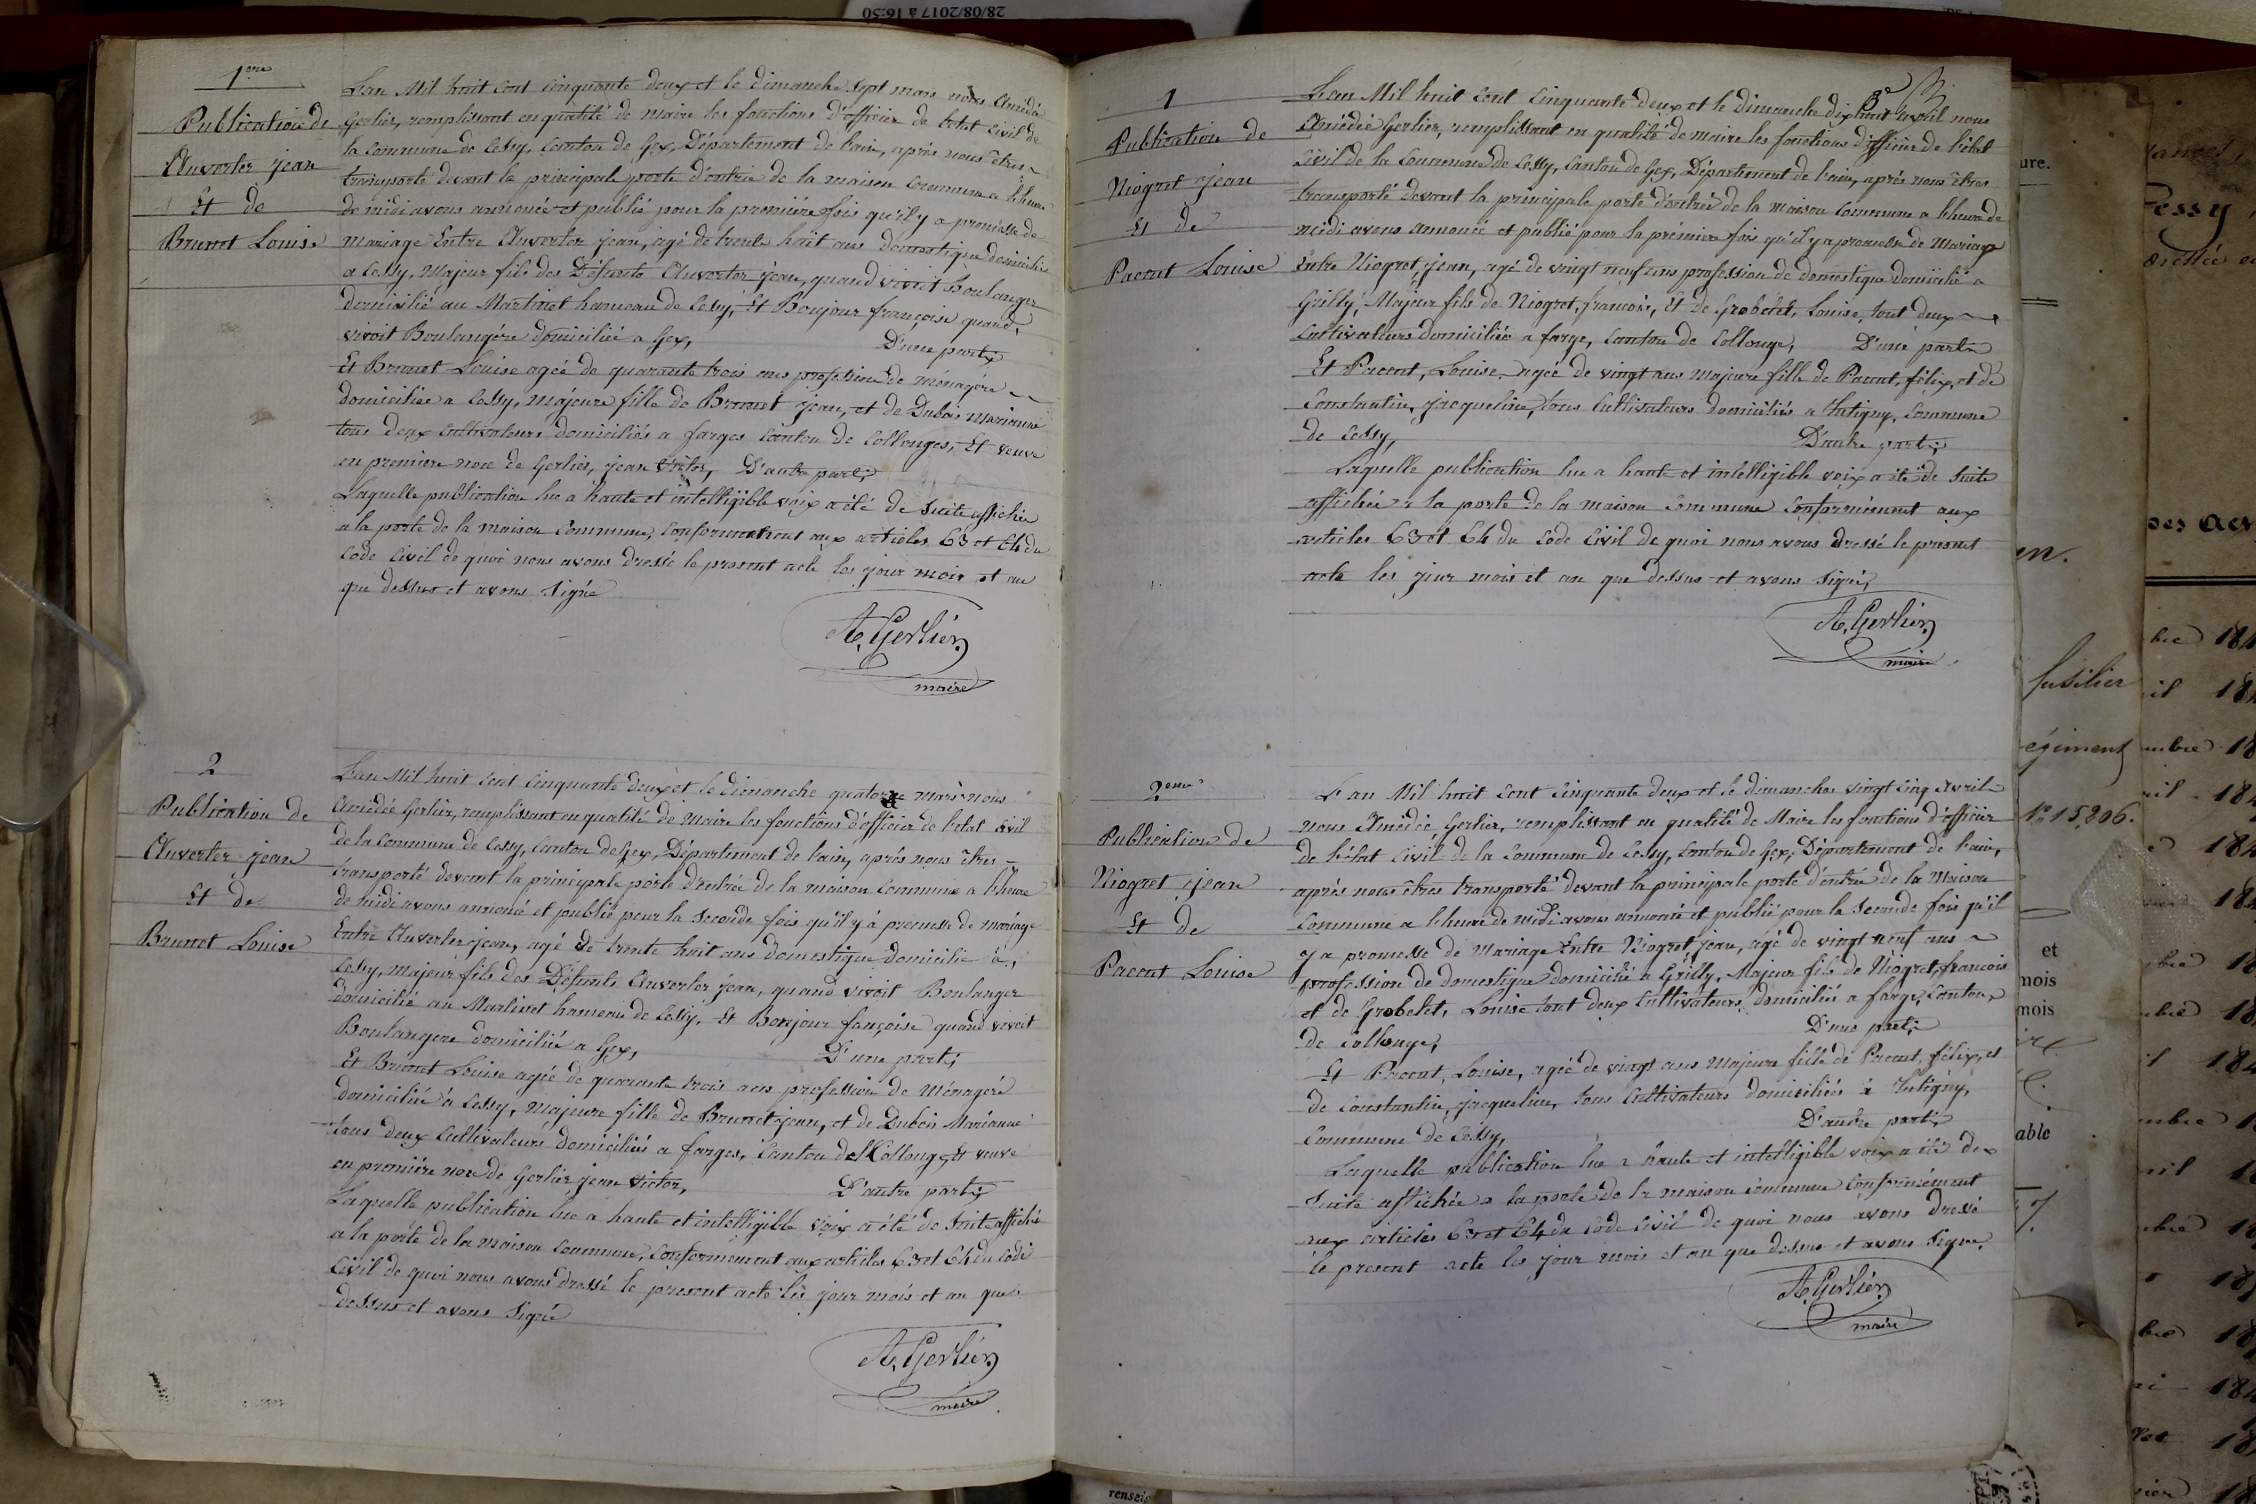 28/08/2017 à 16:50
1ere
Publication de
Auverter jean
Et de
Brunet Louise
L'an Mil huit cent cinquante deux et le dimanche sept mars nous Amédée
Gerlier, remplissant en qualité de maire les fonctions d'officier de l'etat civil de
la commune de Cessy, Canton de Gex, Département de l'ain, après nous êtres
transporté devant la principale porte d'entrée de la maison commune a l'heure
de midi avons annoncé et publié pour la première fois qu'il y a promesse de
mariage Entre Auverter jean, agé de trente huit ans domestique domicilié
a Cessy, Majeur fils des Défunts Auverter jean, quand vivoit Boulanger
domicilié au Martinet hameau de Cessy, Et Boujour françoise quand
vivoit Boulangère domiciliée a Gex, D'une part;
Et Brunet Louise agée de quarante trois ans profession de ménagère
domiciliée a Cessy, majeure fille de Brunet jean, et de Dubois Marianne
tous deux cultivateurs domiciliés a farges canton de Collonges, Et veuve
en premiere noce de Gerlier, jean Victor, D'autre part;
Laquelle publication lue a haute et intelligible voix a été de suite affichée
a la porte de la maison Commune, conformément aux articles 63 et 64 du
Code Civil de quoi nous avons dressé le present acte les jour mois et an
que dessus et avons signé
A. Gerlier
maire
2
Publication de
Auverter jean
Et de
Brunet Louise
L'an Mil huit cent cinquante deux et le dimanche quatorze mars nous
Amédée Gerlier, remplissant en qualité de Maire les fonctions d'officier de l'etat civil
de la Commune de Cessy, Canton de Gex, Département de l'ain, après nous êtres
transporté devant la principale porte d'entrée de la maison commune a l'heure
de midi avons annoncé et publié pour la seconde fois qu'il y à promesse de mariage
Entre Auverter jean, agé de trente huit ans domestique domicilié à
Cessy, majeur fils des Défunts Auverter jean, quand vivoit Boulanger
domicilié au Martinet hameau de Cessy, Et Boujour françoise quand vivoit
Boulangere domiciliée a Gex, D'une part;
Et Brunet Louise agée de quarante trois ans profession de Ménagère
domiciliée à Cessy, Majeure fille de Brunet jean, et de Dubois Marianne
tous deux Cultivateurs domiciliés a farges, Canton de Collonge, Et veuve
en première noce de Gerlier jean Victor, D'autre part;
Laquelle publication lue a haute et intelligible voix a été de suite affichée
a la porte de la maison commune, Conformément aux articles 63 et 64 du Code
Civil de quoi nous avons dressé le present acte les jour mois et an que
dessus et avons signé
A. Gerlier
maire
1
Publication de
Niogret jean
Et de
Pacout Louise
L'an Mil huit cent cinquante deux et le dimanche dix huit avril nous
Amédée Gerlier, remplissant en qualité de maire les fonctions d'officier de l'état
civil de la Commune de Cessy, Canton de Gex, Département de l'ain, après nous êtres
transporté devant la principale porte d'entrée de la maison commune a l'heure de
midi avons annoncé et publié pour la première fois qu'il y a promesse de Mariage
Entre Niogret, jean, agé de vingt neuf ans profession de domestique domicilié a
Grilly, Majeur fils de Niogret, francois, Et de Grobelet, Louise, tout deux
Cultivateurs domiciliés a farge, Canton de Collonge, D'une part;
Et Pacout, Louise, agée de vingt ans Majeure fille de Pacout, félix, et de
Constantin, jacqueline, tous Cultivateurs domiciliés a Tutigny, Commune
de Cessy, D'autre part;
Laquelle publication lue a haute et intelligible voix a été de suite
affichée a la porte de la maison commune Conformément aux
articles 63 et 64 du Code Civil de quoi nous avons dressé le present
acte les jour mois et an que dessus et avons signé,
A. Gerlier
maire
2eme
Publication de
Niogret jean
Et de
Pacout Louise
L'an Mil huit cent cinquante deux et le dimanche vingt cinq Avril
nous Amédée Gerlier, remplissant en qualité de Maire les fonctions d'officier
de l'état civil de la commune de Cessy, Canton de Gex, Département de l'ain,
après nous êtres transporté devant la principale porte d'entrée de la Maison
Commune a l'heure de midi avons annoncé et publié pour la seconde fois qu'il
y a promesse de Mariage Entre Niogret, jean, agé de vingt neuf ans
profession de domestique domicilié a Grilly, Majeur fils de Niogret, francois
et de Grobelet, Louise tout deux Cultivateurs domiciliés a farge, Canton
de Collonge, D'une part;
Et Pacout, Louise, agée de vingt ans Majeure fille de Pacout, félix, et
de Constantin, jacqueline, tous Cultivateurs domiciliés à Tutigny,
Commune de Cessy, D'autre part;
Laquelle publication lue a haute et intelligible voix a été de
suite affichée a la porte de la maison commune Conformément
aux articles 63 et 64 du Code Civil de quoi nous avons dressé
le present acte les jour mois et an que dessus et avons signé.
A. Gerlier
maire
fusilier
No 15,206.
et
mois
mois
able